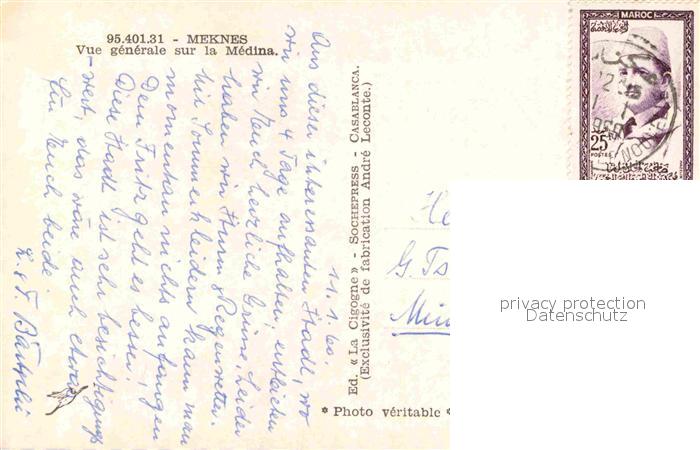 95.401.31 - MEKNES
Vue générale sur la Médina.
11.1.60.
Aus dieser interessanten Stadt, wo
wir uns 4 Tage aufhalten, entbieten
wir Euch herzliche Grüsse. Leider
haben wir Sturm & Regenwetter.
Mit Sommerkleidern kann man
momentan nichts anfangen.
Dem Fritz geht es besser.
Diese Stadt ist sehr besichtigungs-
wert, das wäre auch etwas
für Euch beide.
Ed. « La Cigogne » - SOCHEPRESS - CASABLANCA.
(Exclusivité de fabrication André Leconte.)
* Photo véritable *
MAROC
25
POSTES
He
G. Ts
privacy protection
Datenschutz